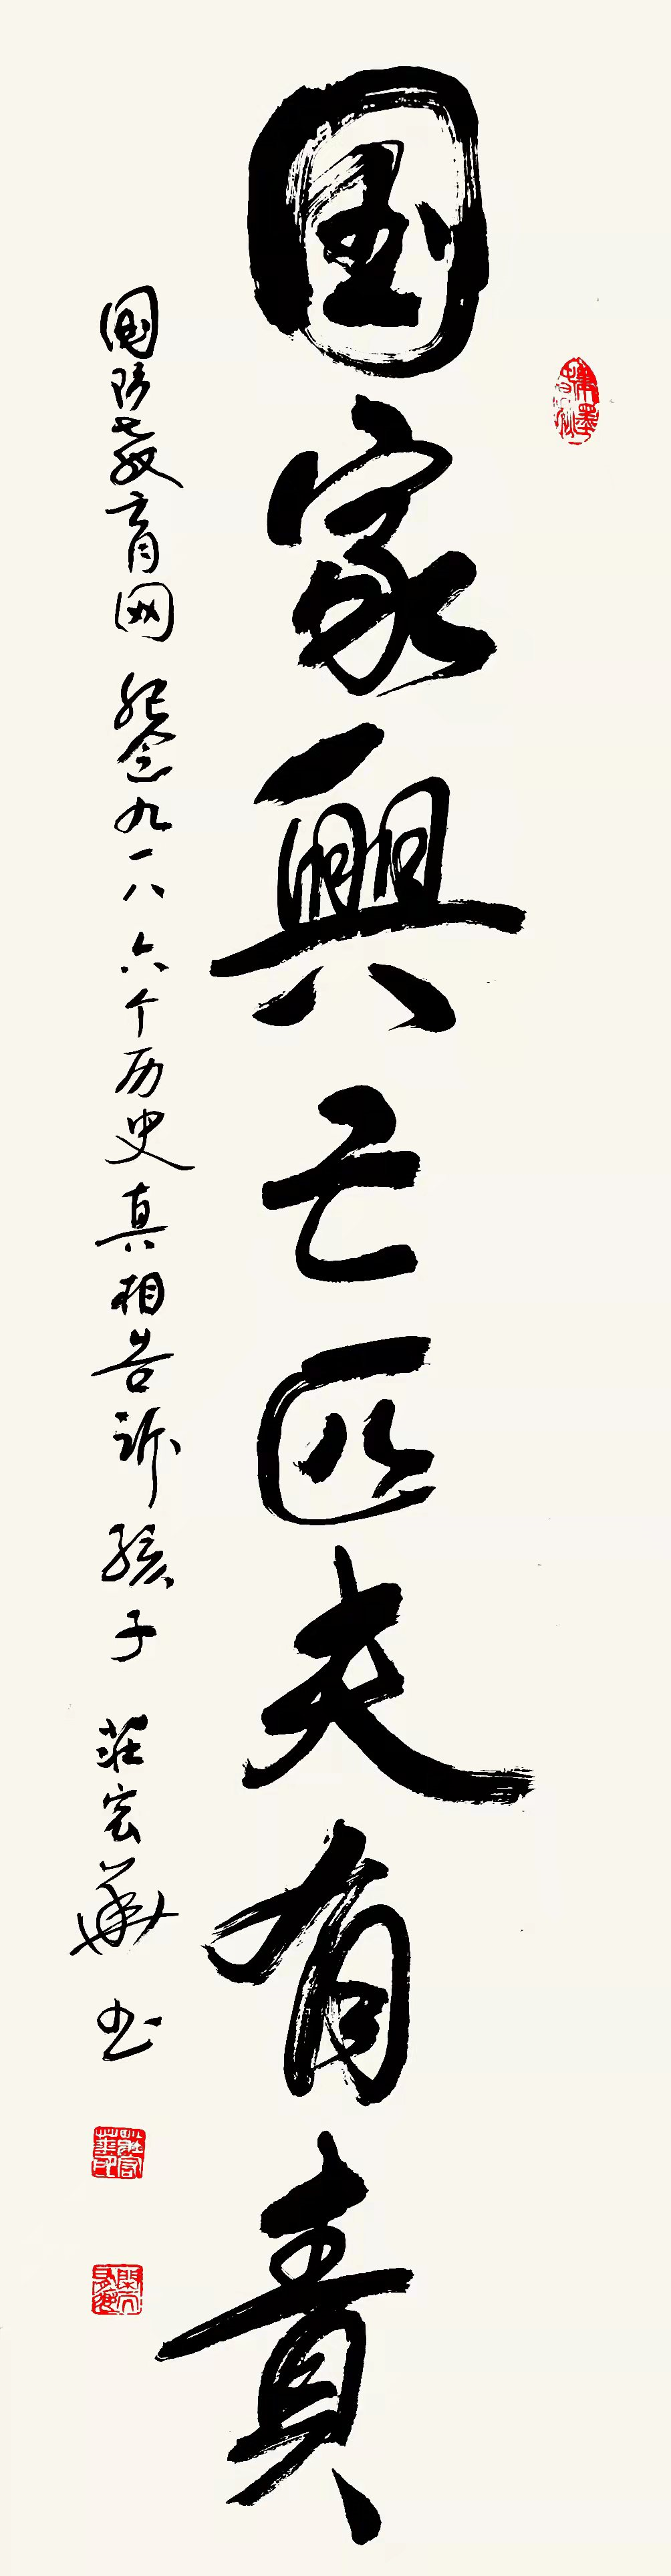 国家興亡匹夫有責
國防教育网 纪念九一八 六个历史真相告诉孩子 莊宏華书